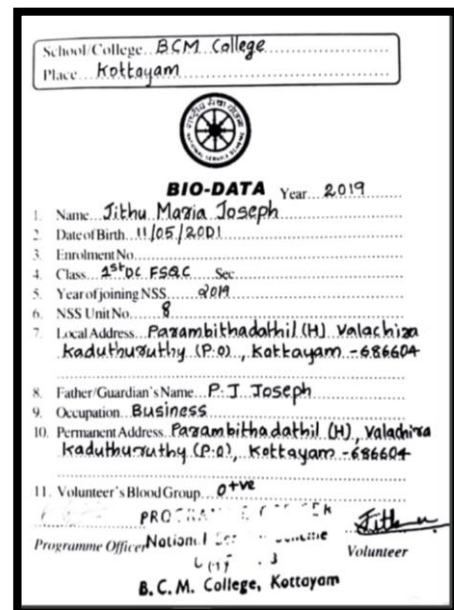 School/College BCM College
Place Kottayam
NATIONAL SERVICE SCHEME
BIO-DATA Year 2019
1. Name Jithu Maria Joseph
2. Date of Birth 11/05/2001
3. Enrolment No.
4. Class 1st DC FSQC Sec
5. Year of joining NSS 2019
6. NSS Unit No. 8
7. Local Address Parambithadathil (H) Valachira
Kaduthuruthy (P.O)., Kottayam - 686604
8. Father/Guardian's Name P.J Joseph
9. Occupation Business
10. Permanent Address Parambithadathil (H)., Valachira
Kaduthuruthy (P.O), Kottayam - 686604
11. Volunteer's Blood Group O+ve
Jithu
Programme Officer National Volunteer
B. C. M. College, Kottayam